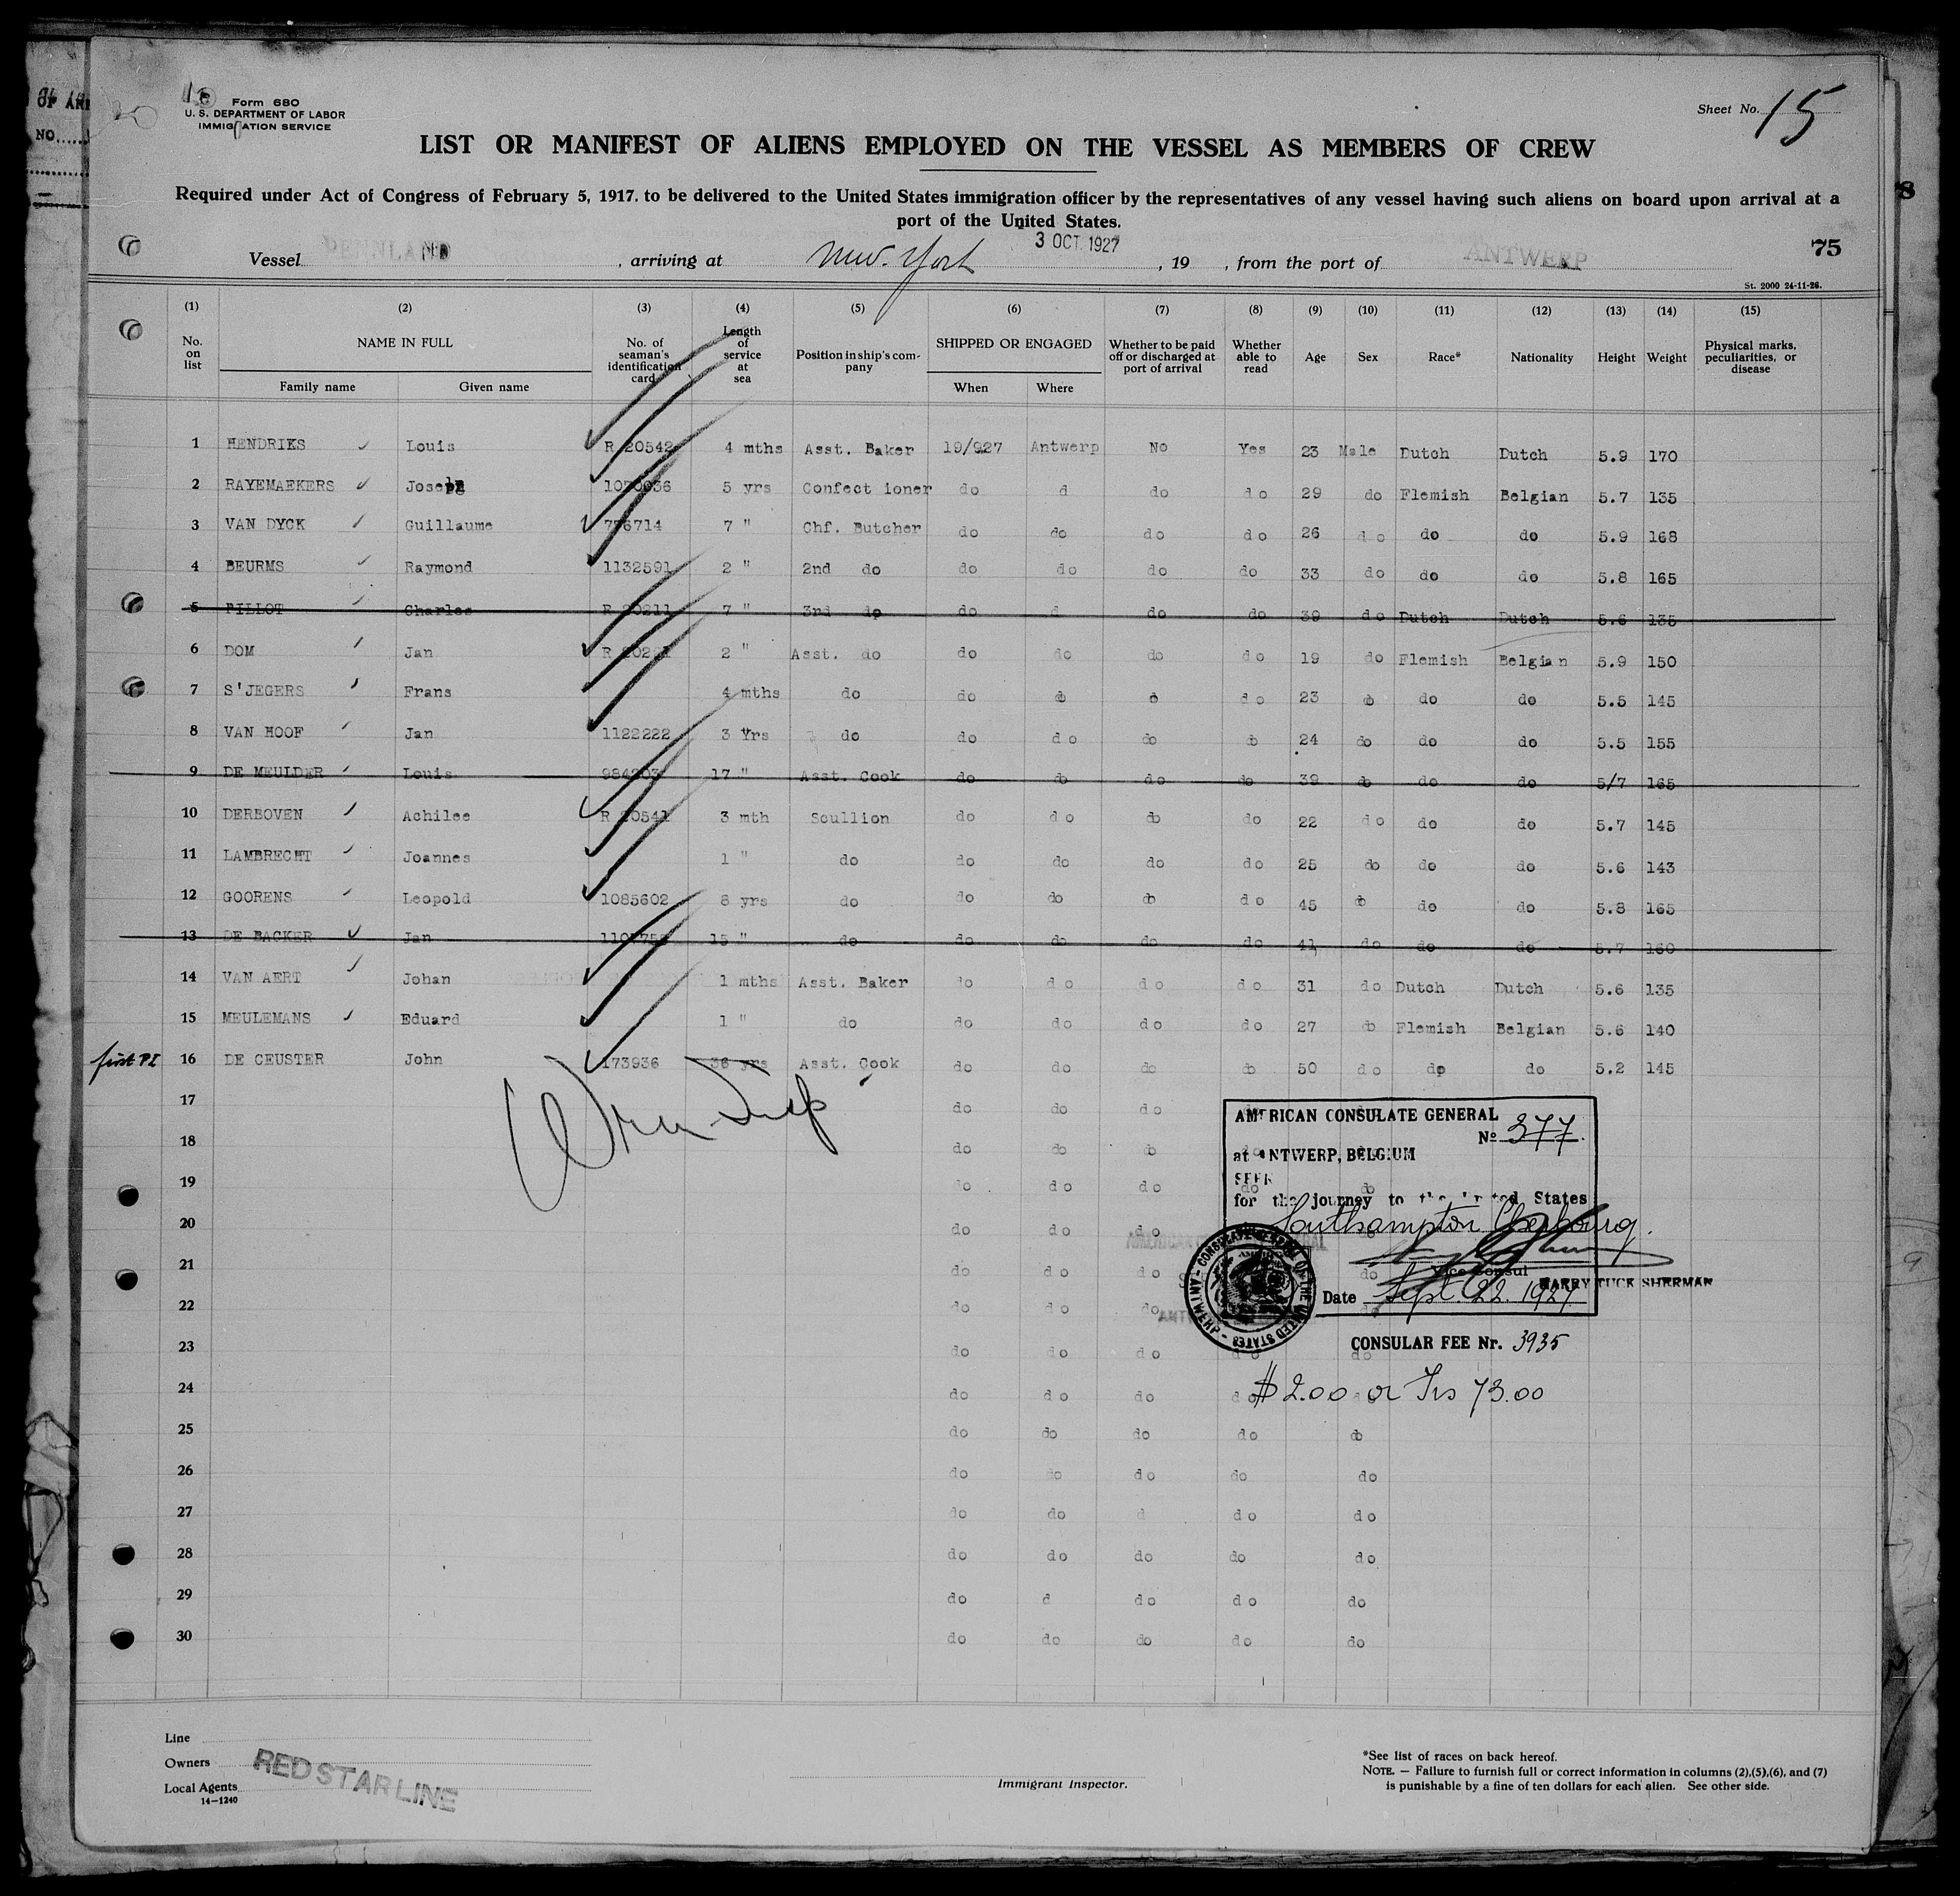 Form 680
U. S. DEPARTMENT OF LABOR
IMMIGRATION SERVICE
Sheet No. 15
LIST OR MANIFEST OF ALIENS EMPLOYED ON THE VESSEL AS MEMBERS OF CREW
Required under Act of Congress of February 5, 1917. to be delivered to the United States immigration officer by the representatives of any vessel having such aliens on board upon arrival at a
port of the United States.
Vessel PENNLAND, arriving at New. York 3 OCT. 1927, 19 , from the port of ANTWERP 75
St. 2000 24-11-26.
(1) (2) (3) (4) (5) (6) (7) (8) (9) (10) (11) (12) (13) (14) (15)
No. on list NAME IN FULL Family name Given name No. of seaman's identification card Length of service at sea Position in ship's company SHIPPED OR ENGAGED When Where Whether to be paid off or discharged at port of arrival Whether able to read Age Sex Race* Nationality Height Weight Physical marks, peculiarities, or disease
1 HENDRIKS Louis R 20542 4 mths Asst. Baker 19/927 Antwerp No Yes 23 Male Dutch Dutch 5.9 170
2 RAYEMAEKERS Joseph 5 yrs Confect ioner do d do do 29 do Flemish Belgian 5.7 135
3 VAN DYCK Guillaume 776714 7 " Chf. Butcher do do do do 26 do do do 5.9 168
4 BEURMS Raymond 1132591 2 " 2nd do do do do do 33 do do do 5.8 165
5 PILLOT Charles R 20211 7 " 3rd do do d do do 39 do Dutch Dutch 5.6 135
6 DOM Jan 2 " Asst. do do do do do 19 do Flemish Belgian 5.9 150
7 S'JEGERS Frans 4 mths do do do do do 23 do do do 5.5 145
8 VAN HOOF Jan 1122222 3 Yrs do do do do do 24 do do do 5.5 155
9 DE MEULDER Louis 17 " Asst. Cook do do do do 39 do do do 5/7 165
10 DERBOVEN Achilee R 20541 3 mth Scullion do do do do 22 do do do 5.7 145
11 LAMBRECHT Joannes 1 " do do do do do 25 do do do 5.6 143
12 GOORENS Leopold 1085602 8 yrs do do do do do 45 do do do 5.8 165
13 DE BACKER Jan 15 " do do do do do 41 do do do 5.7 160
14 VAN AERT Johan 1 mths Asst. Baker do do do do 31 do Dutch Dutch 5.6 135
15 MEULEMANS Eduard 1 " do do do do do 27 do Flemish Belgian 5.6 140
first P.I 16 DE CEUSTER John 173936 36 yrs Asst. Cook do do do do 50 do do do 5.2 145
17 do do do
18 do do do
19 do do do do do
20 do do do
21 do do do do
22 do do do do
23 do do do do do
24 do do do do
25 do do do do do
26 do do do do do
27 do do d do do
28 do do do do do
29 do d do do do
30 do do do do do
AMERICAN CONSULATE GENERAL
No 377.
at ANTWERP, BELGIUM
SEEN
for the journey to the United States
Southampton Cherbourg.
Vice Consul
HARRY TUCK SHERMAN
Date Sept. 22. 1927
CONSULATE GENERAL OF THE UNITED STATES - ANTWERP -
CONSULAR FEE Nr. 3935
$ 2.00 or Frs 73.00
Line
Owners
Local Agents
RED STAR LINE
14—1240
Immigrant Inspector.
*See list of races on back hereof.
NOTE. — Failure to furnish full or correct information in columns (2),(5),(6), and (7)
is punishable by a fine of ten dollars for each alien. See other side.